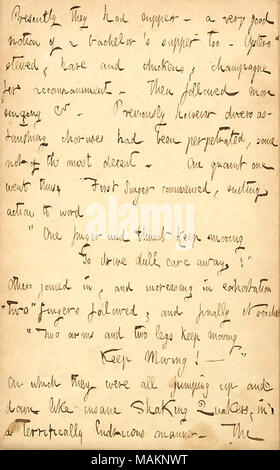 Presently they had supper - a very good
notion of a bachelor's supper too. Oysters
stewed, hare and chickens, champagne
for accompaniment. Then followed more
singing &c. Previously however divers as-
tounishing choruses had been perpetrated, some
not of the most decent. One quaint one
went thus, First singer commenced, suiting
action to word
"One finger and thumb keep moving
To drive dull care away!"
Others joined in, and increasing in exhortation
"two" fingers followed, and finally
"Two arms and two legs keep moving
Keep Moving! - "
On which they were all jumping up and
down like insane Shaking Quakers, in
a terrifically ludicrous manner. The
alamy
Image ID: MAKNWT
www.alamy.com